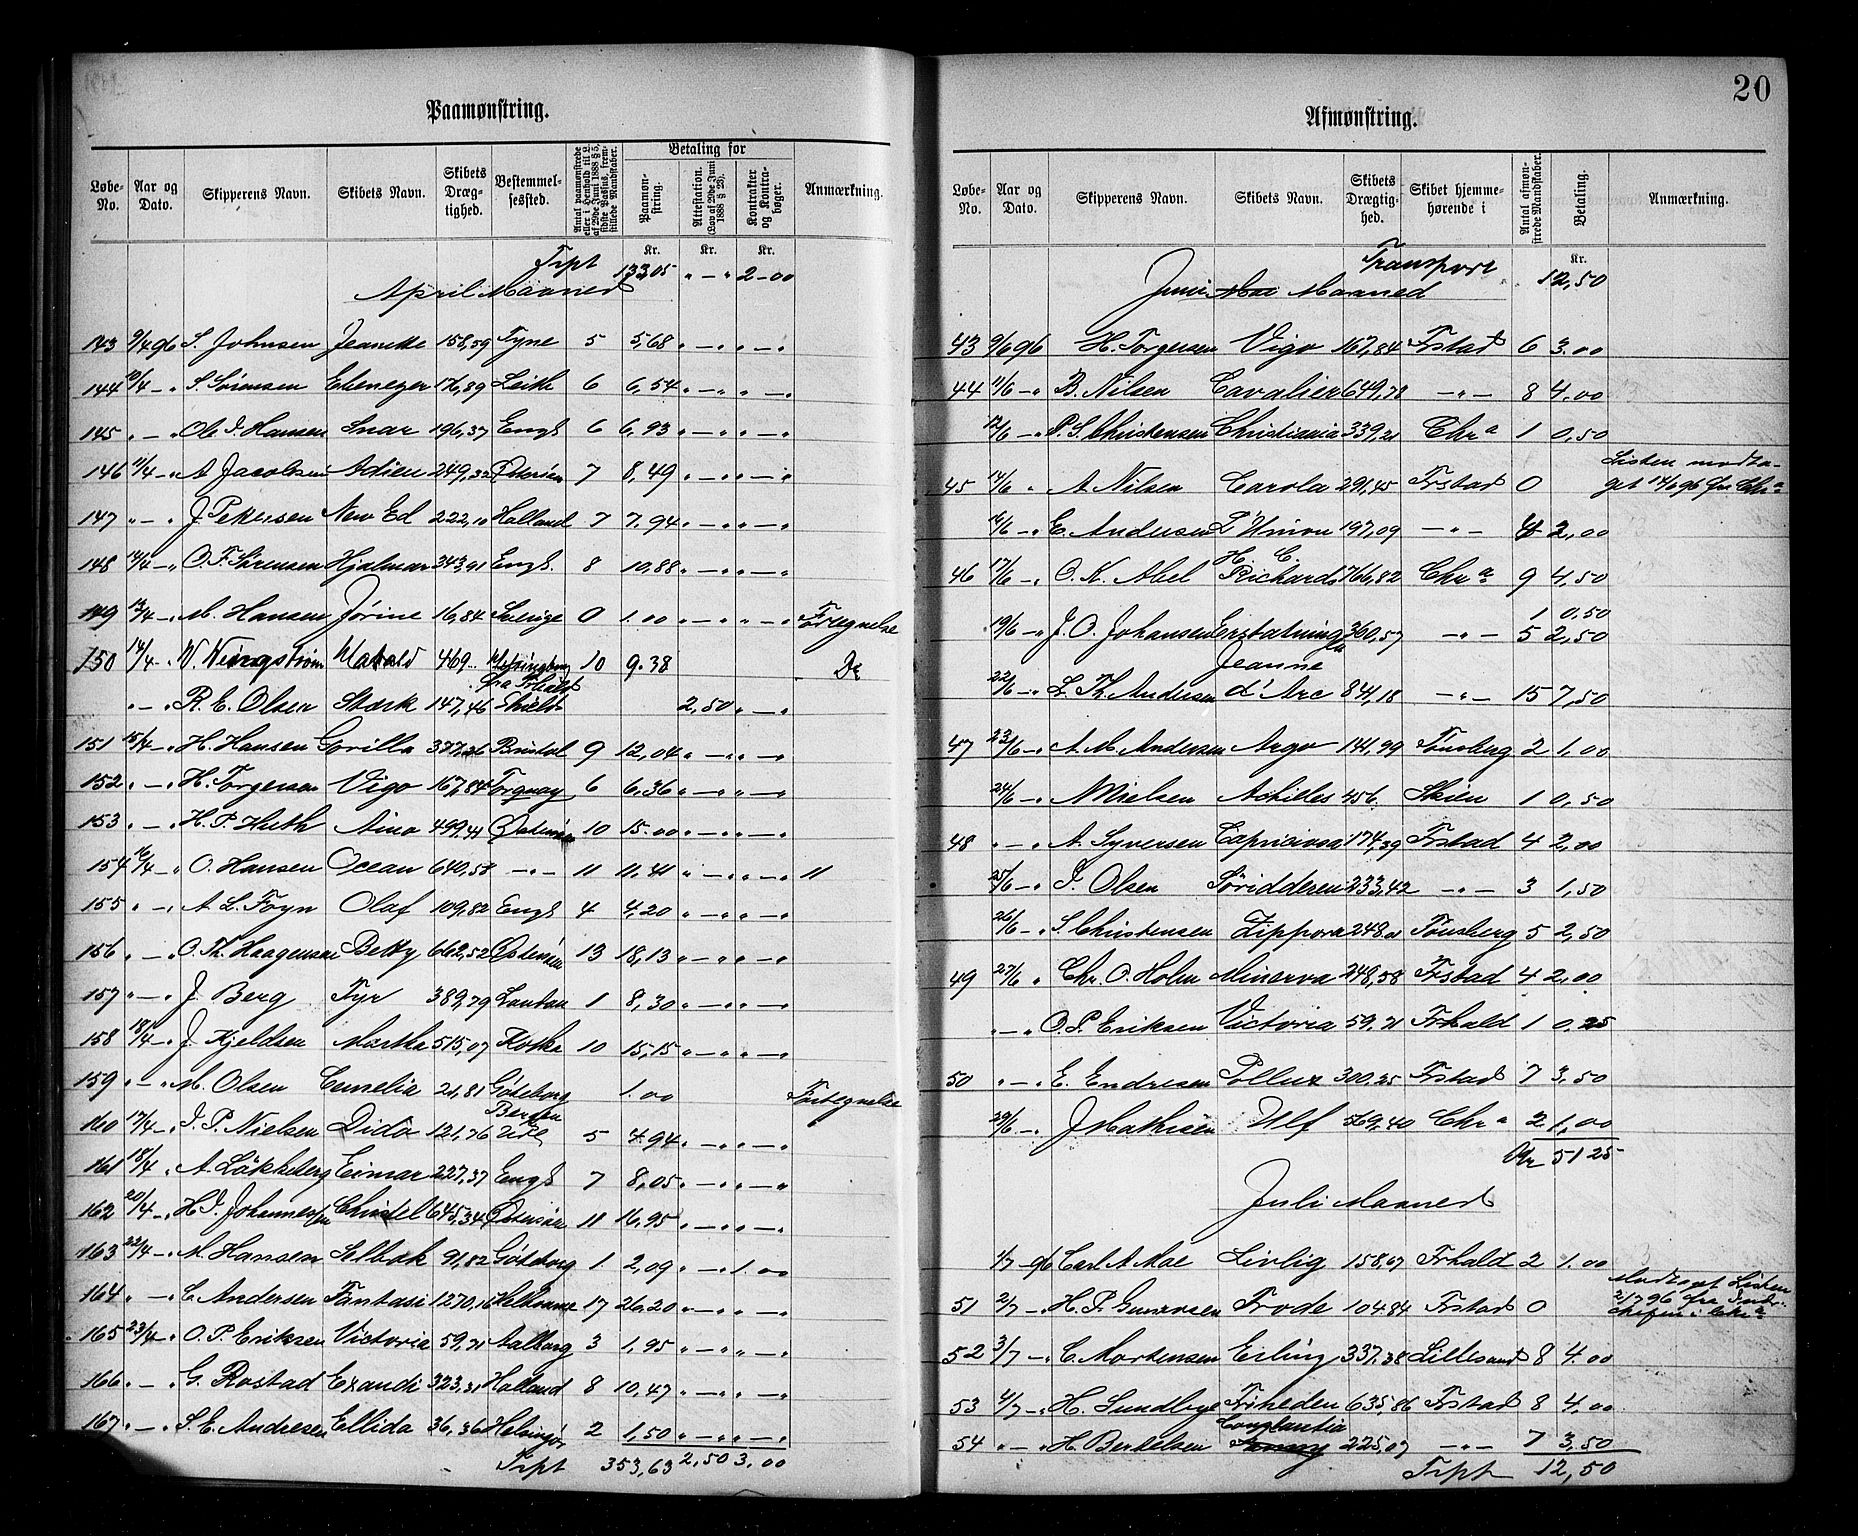 20
Paamønstring.
Løbe-No. Aar og Dato. Skipperens Navn. Skibets Navn. Skibets Dræg-tighed. Bestemmel-sessted. Antal paamønstrede eller i Henhold til L. af 29de Juni 1888 § 5, sidste Passus, frem-stillede Mandskaber. Betaling for Paamøn-string. Attestation. (Lov af 29de Juni 1888 § 23). Kontrakter og Kontra-bøger. Anmærkning.
Kr. Kr. Kr.
Trpt 133,05 " — " 2-00
April Maaned
143 9/4 96 S. Johnsen Jeanette 158,59 Tyne 5 5,68 " — " " — "
144 10/4 - " S. Sörensen Ebenezer 176,89 Leith 6 6,54 " — " " — "
145 " — " Ole J. Hansen Snar 196,37 Engl 6 6,93 " — " " — "
146 11/4 - " A Jacobsen Adien 249,32 Østersöen 7 8,49 " — " " — "
147 " — " J. Petersen New Ed 222,10 Holland 7 7,94 " — " " — "
148 14/4 - " O. F. Sörensen Hjalmar 343,91 Engl. 8 10,88 " — " " — "
149 13/4 - " M. Hansen Jörine 16,84 Sverige 0 1.00 " — " " — " Fortegnelse
150 14/4 - " W Wingström Harald 469 Helsingborg fra Frhald 10 9.38 Do
" — " R. E. Olsen Stærk 147,46 Shields 2,50 " — "
151 15/4 - " H. Hansen Gorilla 377,26 Bristol 9 12,04 " — " " — "
152 " — " H. Torgersen Vigo 167,84 Torquay 6 6,36 " — " " — "
153 " — " H. P. Huth Aino 499,41 Østersöen 10 15.00 " — " " — "
154 16/4 - " O. Hansen Ocean 640,58 — " — 11 11,41 " — " " — " 11
155 " — " A. L. Foyn Olaf 109,82 Engl 4 4,20 " — " " — "
156 " — " O. Th. Haagensen Betty 662,52 Østersöen 13 18,13 " — " " — "
157 " — " J. Berg Tyr 389,79 London 1 8,30 " — " " — "
158 18/4 - " J. Kjeldsen Martha 515,07 Kotka 10 15,15 " — " " — "
159 " — " M. Olsen Cornelia 21,81 Göteborg 1.00 Fortegnelse
160 17/4 - " J. P. Nielsen Dido 121,76 5 4.94 " — " " — "
161 18/4 A. Lökkeberg Eimar 227,37 Engl 7 8,05 " — " " — "
162 20/4 - " H J. Johannessen Christel 645,34 Østersöen 11 16,95 " — " " — "
163 22/4 - " M. Hansen Selbak 91,82 Göteborg 1 2,09 " — " 1.00
164 " — " C. Andersen Fantasi 1270,16 17 26,20 " — " " — "
165 23/4 - " O. P. Eriksen Victoria 59,21 Aalborg 3 1,95 " — " " — "
166 " — " G. Rostad Exandi 323,31 Holland 8 10,47 " — " " — "
167 " — " S. E. Andresen Ellida 36,36 Helsingör 2 1,50 " — " " — "
Trpt 353,63 2,50 3.00
Afmønstring.
Løbe-No. Aar og Dato. Skipperens Navn. Skibets Navn. Skibets Drægtig-hed. Skibet hjemme-hørende i Antal afmøn-strede Mandskaber. Betaling. Anmærkning.
Kr.
Transport " 12,50
Juni Mai Maaned
43 9/6 96 H. Torgersen Vigo 167,84 Frstad 6 3.00
44 11/6 - " B. Nilsen Cavalier 649,78 — " — 8 4.00
12/6 - " P. S. Christensen Christiania 339,21 Chr a 1 0,50
45 14/6 " A. Nilsen Carola 291,45 Frstad 0 Listen modta-get 14/6 96 fra Chr a
16/6 - " E. Andersen L'Union 197,09 — " — 4 2,00
46 17/6 - " O. K. Abel H. C. Richards 766,82 Chr a 9 4,50
1 0,50
19/6 - " J. O. Johansen Erstatningen 360,57 — " — 5 2,50
22/6 - " L. Th. Andersen Jeanne d'Arc 841,18 — " — 15 7,50
47 23/6 - " A. M. Andersen Argo 141,99 Tönsberg 2 1.00
24/6 - " A Nielsen Achilles 456. Skien 1 0,50
48 " — " A. Syversen Capriciosa 174,39 Frstad 4 2,00
25/6 - " J. Olsen Söridderen 233,42 — " — 3 1,50
26/6 - " S. Christensen Zippora 248,01 Tönsberg 5 2,50
49 27/6 " Chr. O. Holm Minerva 249,58 Frstad 4 2,00
" — " O. P. Eriksen Victoria 59,21 Frhald 1 0,25
50 " — " E. Endresen Pollux 300,25 Frstad 7 3,50
29/6 - " J Mathisen Ulf 569,40 Chr a 2 1,00
Kr 51 25
Juli Maaned
1/7 - 96 Carl A. Moe Livlig 158,67 Frhald 2 1.00
51 2/7 - " H. P. Gunersen Frode 104.84 Frstad 0 Modtaget Listen 2/7 96 fra
52 3/7 - " C. Mortensen Erling 337,38 Lillesand 8 4.00
53 4/7 - " H. Lundbye Friheden 635,86 Frstad 8 4.00
54 " — " H. Bertelsen Constantia 225,07 — " — 7 3,50
Trpt 12,50